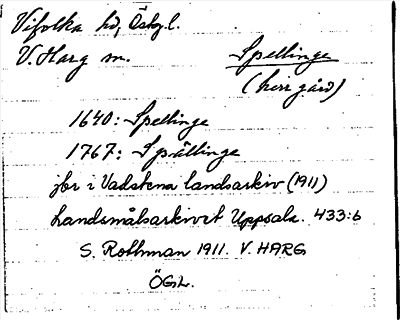 Vifolka hd, Öskg.l.
V. Harg sn.
Spellinge
(herrgård)
1640: Spellinge
1767: Spällinge
jbr i Vadstena landsarkiv (1911)
Landsmålsarkivet Uppsala. 433:6
S. Rothman 1911. V. HARG
ÖGL.